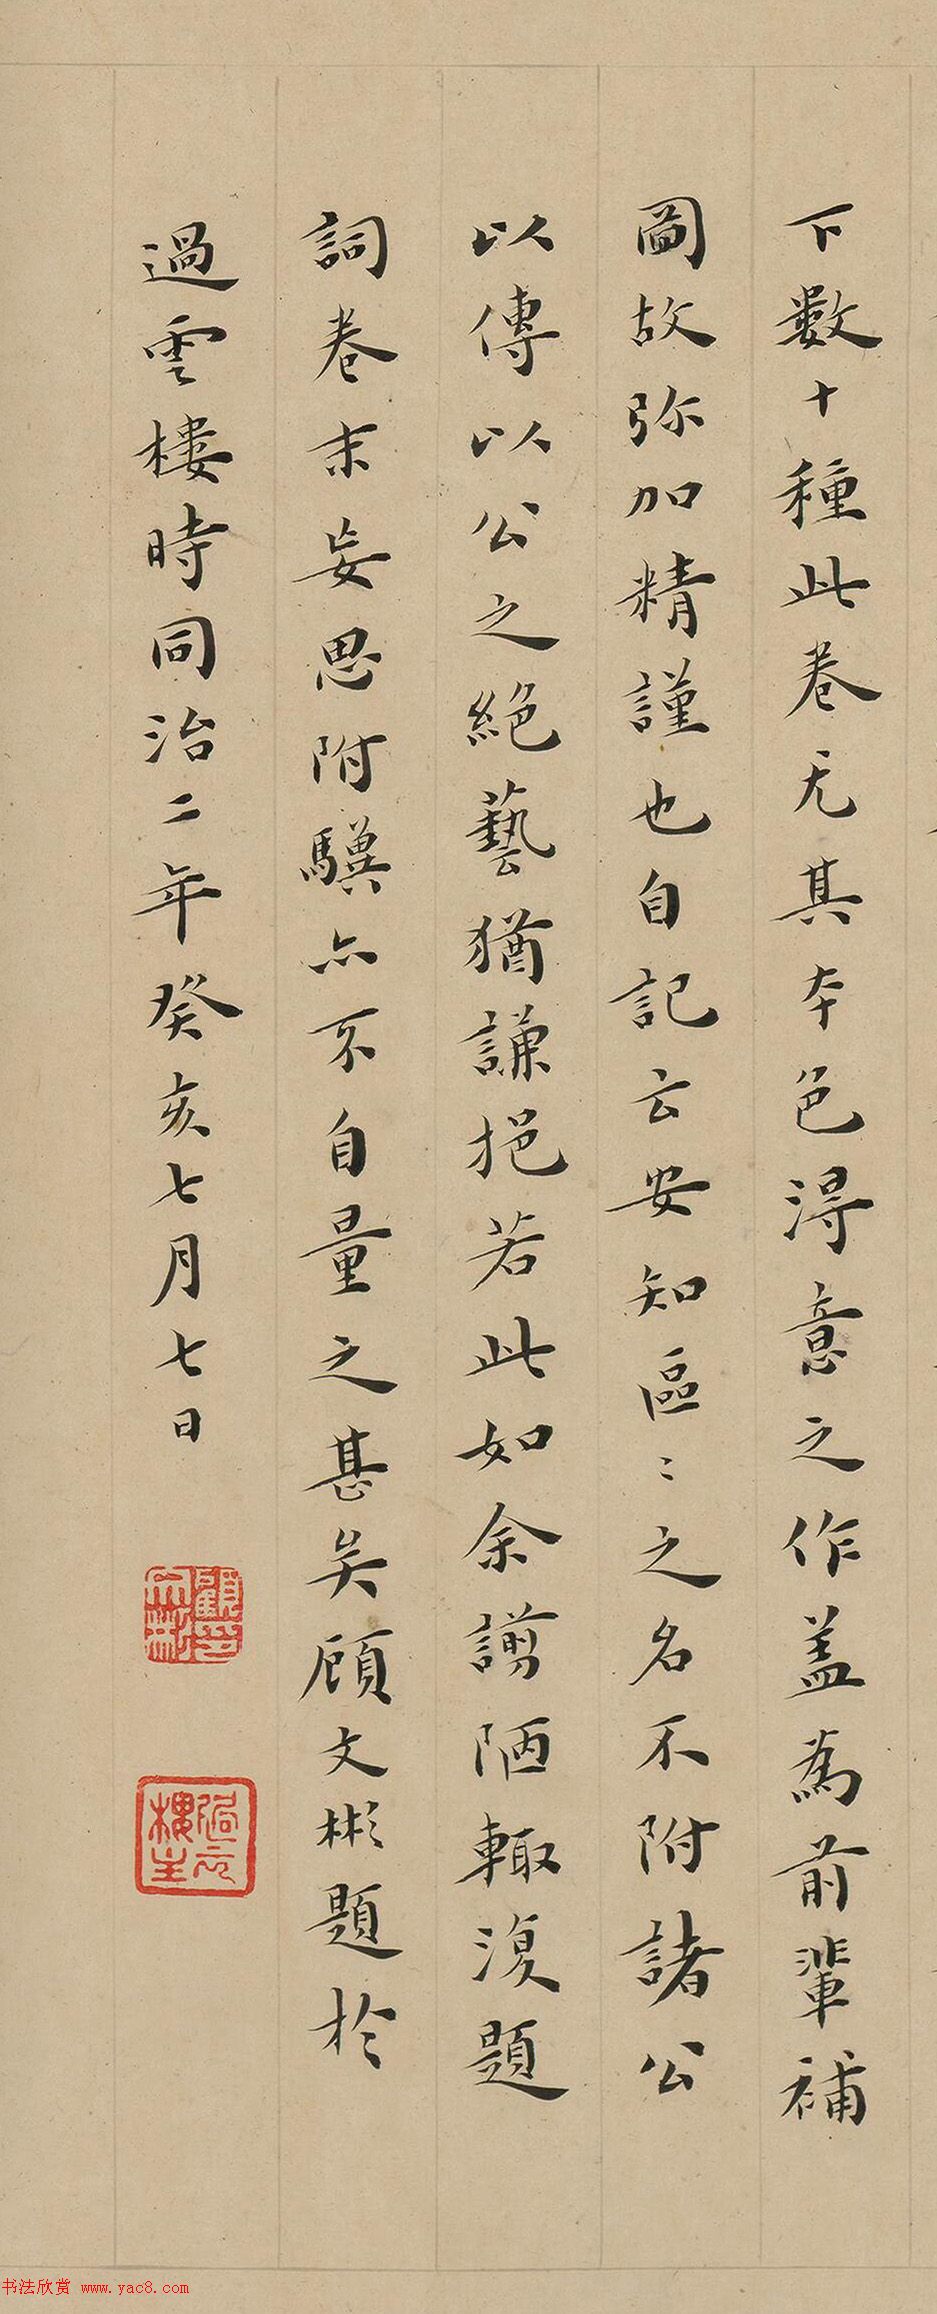 下數十種此卷尤其本色得意之作蓋為前輩補
圖故弥加精謹也自記云安知區〻之名不附諸公
以傳以公之絕藝猶謙挹若此如余譾陋輙復題
詞卷末妄思附驥亦不自量之甚矣顧文彬題於
過雲樓時同治二年癸亥七月七日
顧文彬印
過雲樓主
书法欣赏 www.yac8.com